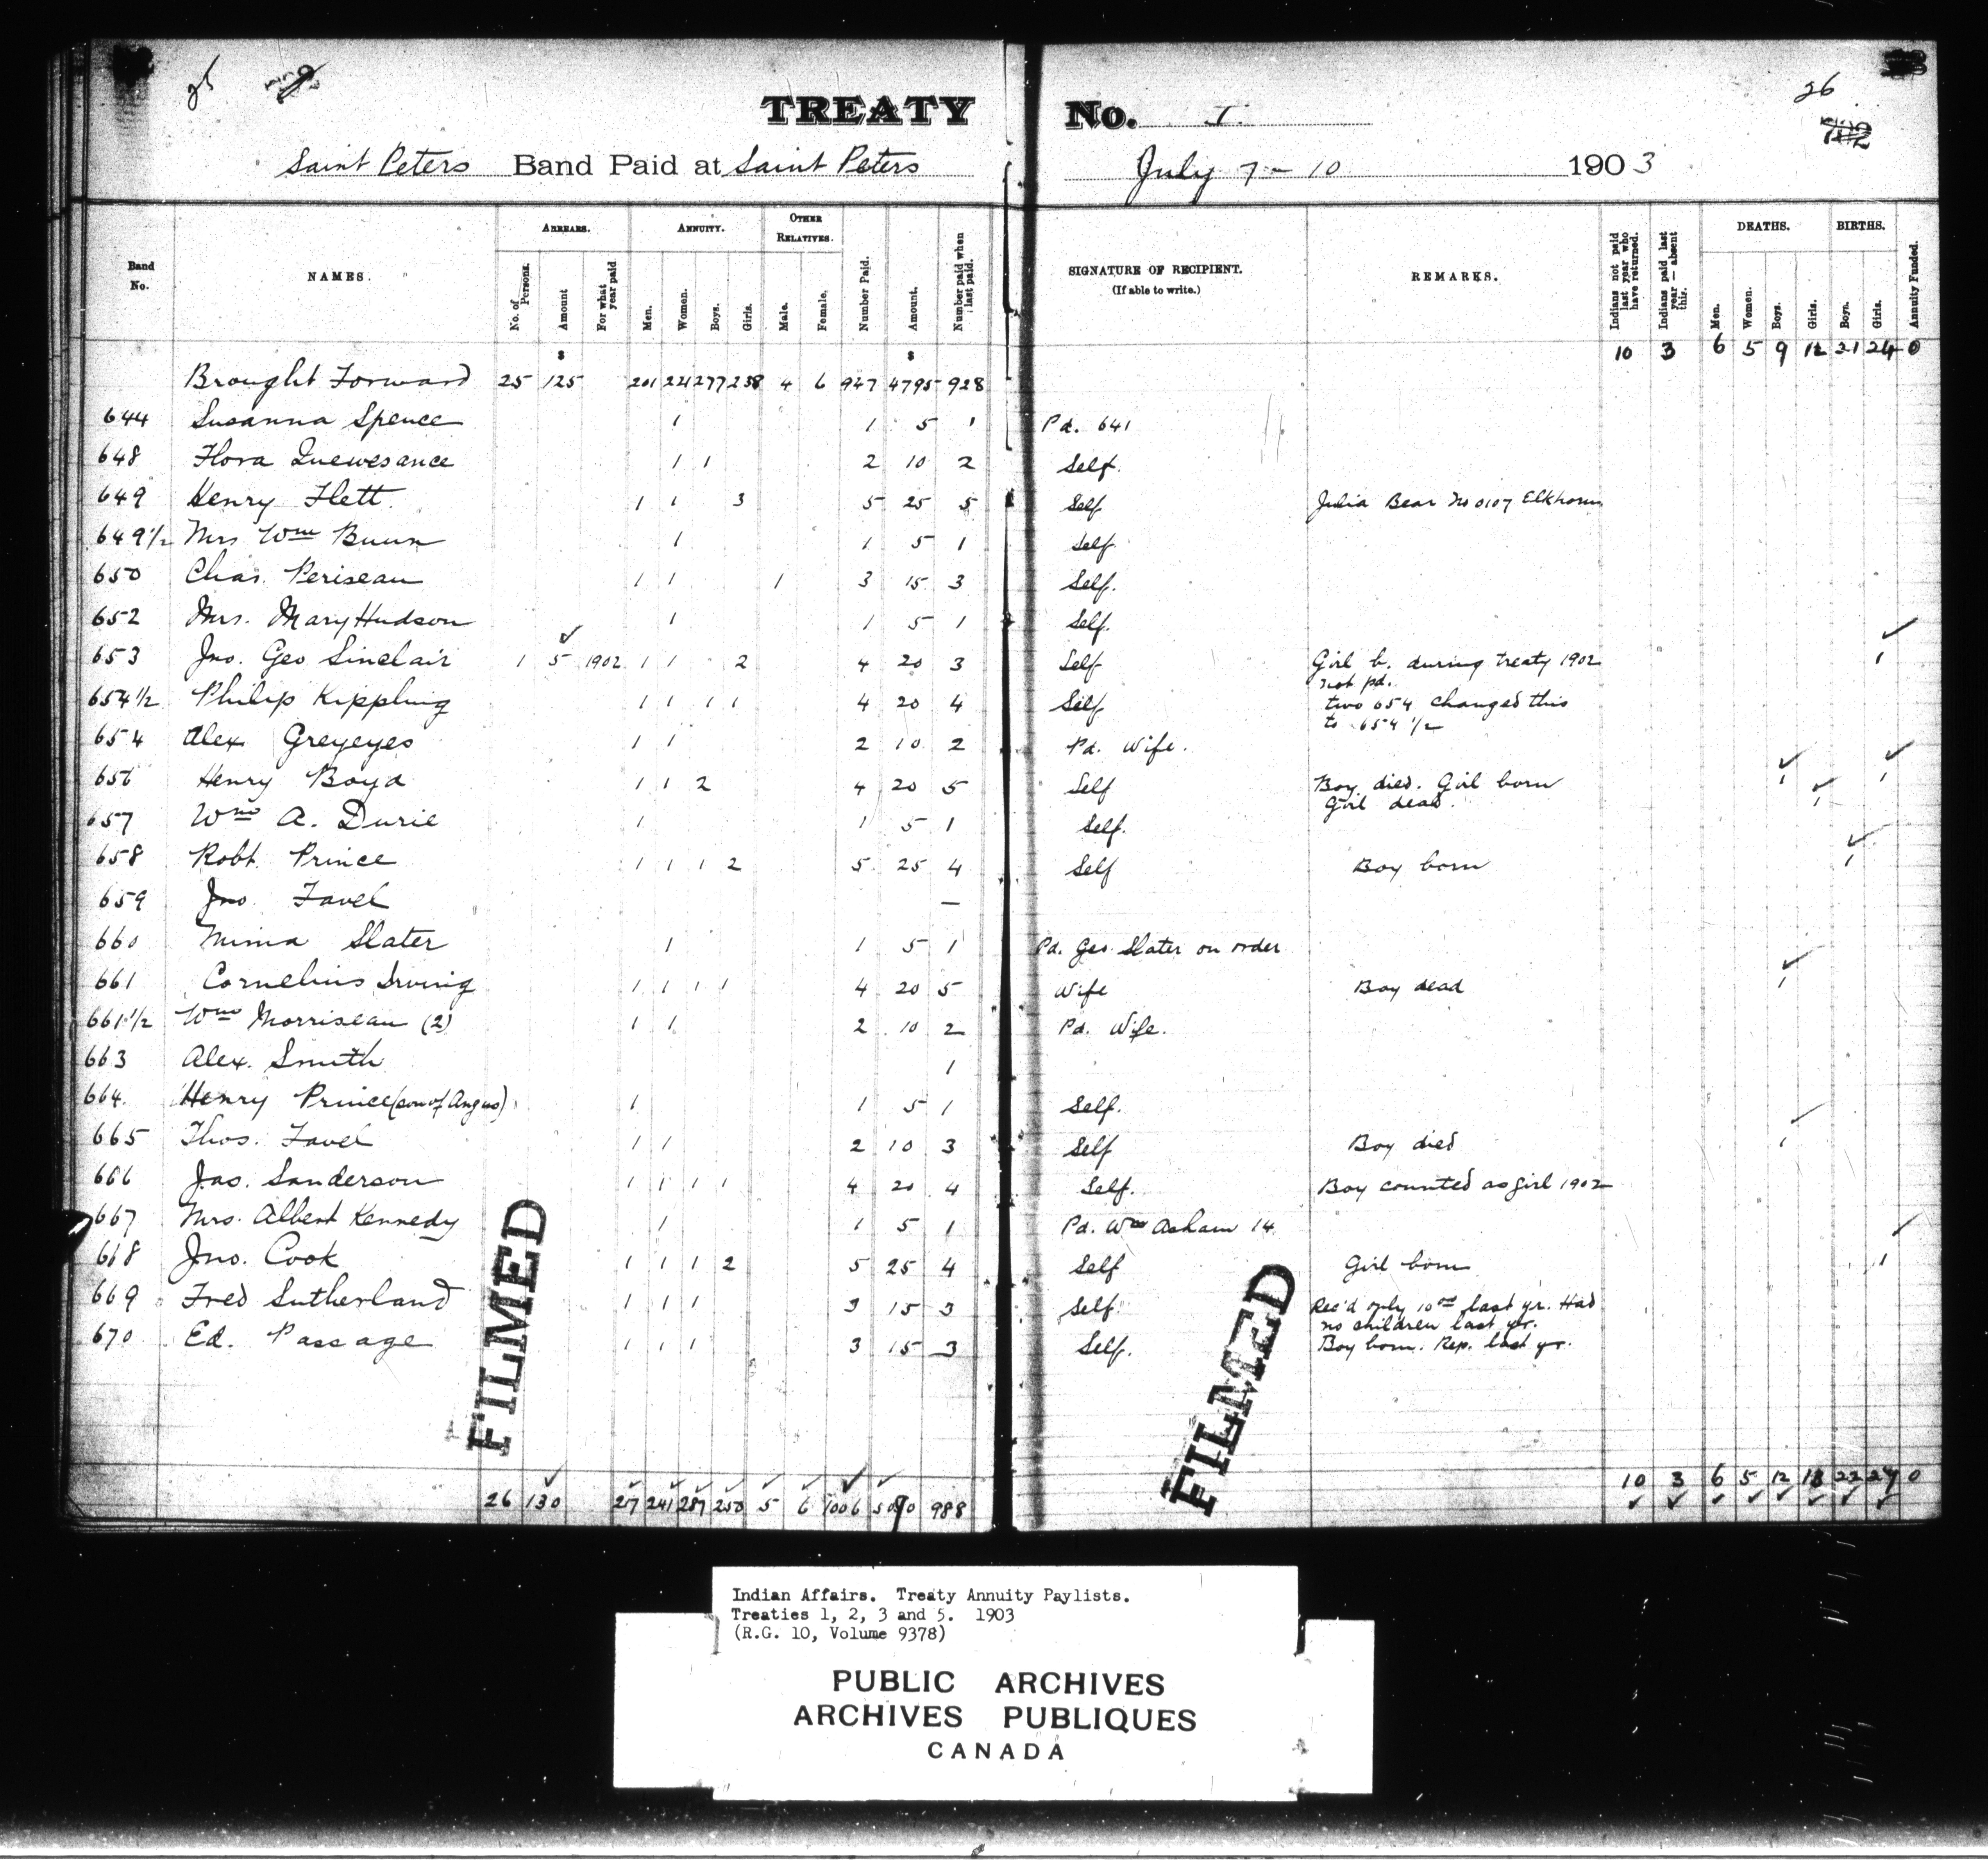 26
26
TREATY No. I.
1902
Saint Peters Band Paid at Saint Peters July 7 - 10 1903
Band No. NAMES. ARREARS. No. of Persons. Amount For what year paid ANNUITY. Men. Women. Boys. Girls. OTHER RELATIVES. Male. Female. Number Paid. Amount. Number paid when last paid. SIGNATURE OF RECIPIENT. (If able to write.) REMARKS. Indians not paid last year who have returned. Indians paid last year — absent this. DEATHS. Men. Women. Boys. Girls. BIRTHS. Boys. Girls. Annuity Funded.
$ $ 10 3 6 5 9 12 21 24 0
Brought Forward 25 125 201 221 277 238 4 6 947 4795 928
644 Susanna Spence 1 1 5 1 Pd. 641
648 Flora Quewesance 1 1 2 10 2 Self.
649 Henry Flett. 1 1 3 5 25 5 Self Julia Bear No 0107 Elkhorn
649 1/2 Mrs Wm Bunn 1 1 5 1 Self
650 Chas. Periseau 1 1 1 3 15 3 Self.
652 Mrs. Mary Hudson 1 1 5 1 Self.
653 Jno. Geo Sinclair 1 5 1902 1 1 2 4 20 3 Self Girl b. during treaty 1902 1
not pd.
654 1/2 Philip Kippling 1 1 1 1 4 20 4 Self two 654 changed this
to 654 1/2
654 Alex Greyeyes 1 1 2 10 2 Pd. Wife.
656 Henry Boyd 1 1 2 4 20 5 Self Boy died. Girl born 1 1
Girl dead. 1
657 Wm A. Durie 1 1 5 1 Self.
658 Robt Prince 1 1 1 2 5 25 4 Self Boy born 1
659 Jno Favel —
660 Mima Slater 1 1 5 1 Pd. Geo Slater on order
661 Cornelius Irving 1 1 1 1 4 20 5 Wife Boy dead 1
661 1/2 Wm Morriseau (2) 1 1 2 10 2 Pd. Wife.
663 Alex. Smith 1
664 Henry Prince (son of Angus) 1 1 5 1 Self.
665 Thos. Favel 1 1 2 10 3 Self Boy died 1
666 Jas. Sanderson 1 1 1 1 4 20 4 Self. Boy counted as girl 1902
667 Mrs. Albert Kennedy 1 1 5 1 Pd. Wm Asham 14
668 Jno. Cook 1 1 1 2 5 25 4 Self Girl born 1
669 Fred Sutherland 1 1 1 3 15 3 Self. Rec'd only 10 00 last yr. Had
no children last yr.
670 Ed. Passage 1 1 1 3 15 3 Self. Boy born. Rep. last yr.
FILMED
FILMED
26 130 217 241 287 250 5 6 1006 5090 988 10 3 6 5 12 13 22 27 0
Indian Affairs. Treaty Annuity Paylists.
Treaties 1, 2, 3 and 5. 1903
(R.G. 10, Volume 9378)
PUBLIC ARCHIVES
ARCHIVES PUBLIQUES
CANADA